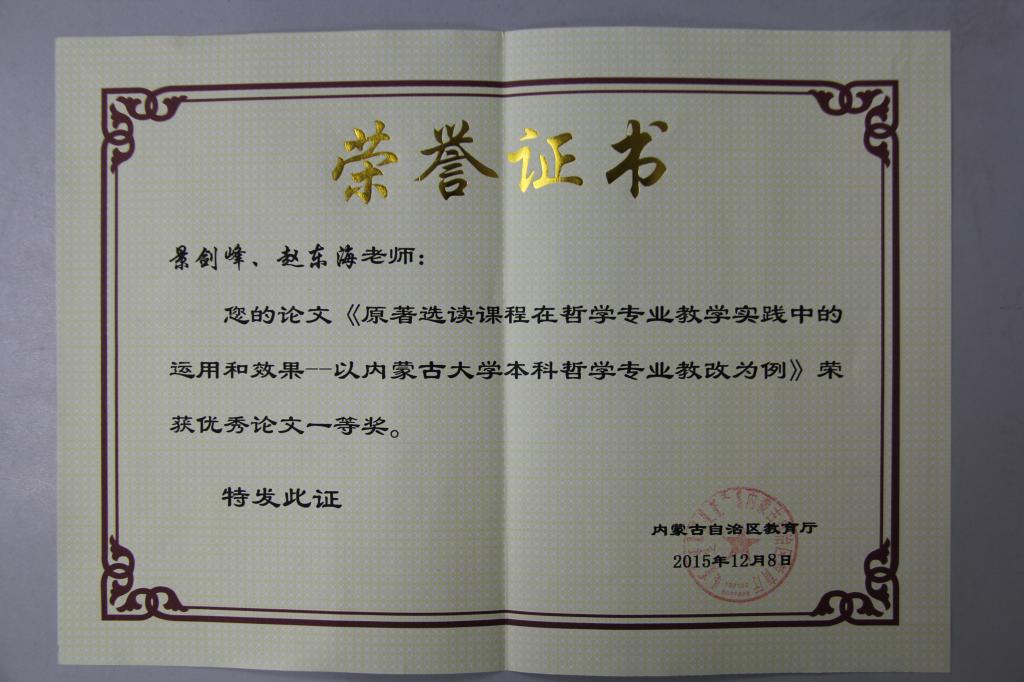 荣誉证书
景剑峰、赵东海老师：
您的论文《原著选读课程在哲学专业教学实践中的
运用和效果--以内蒙古大学本科哲学专业教改为例》荣
获优秀论文一等奖。
特发此证
内蒙古自治区教育厅
2015年12月8日